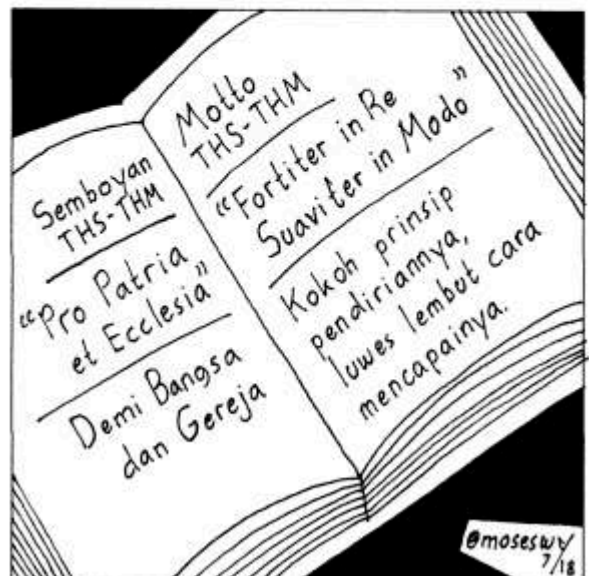 Semboyan
THS-THM
“Pro Patria
et Ecclesia”
Demi Bangsa
dan Gereja
Motto
THS-THM
“Fortiter in Re
Suaviter in Modo”
Kokoh prinsip
pendiriannya,
luwes lembut cara
mencapainya.
@moseswy
7/18